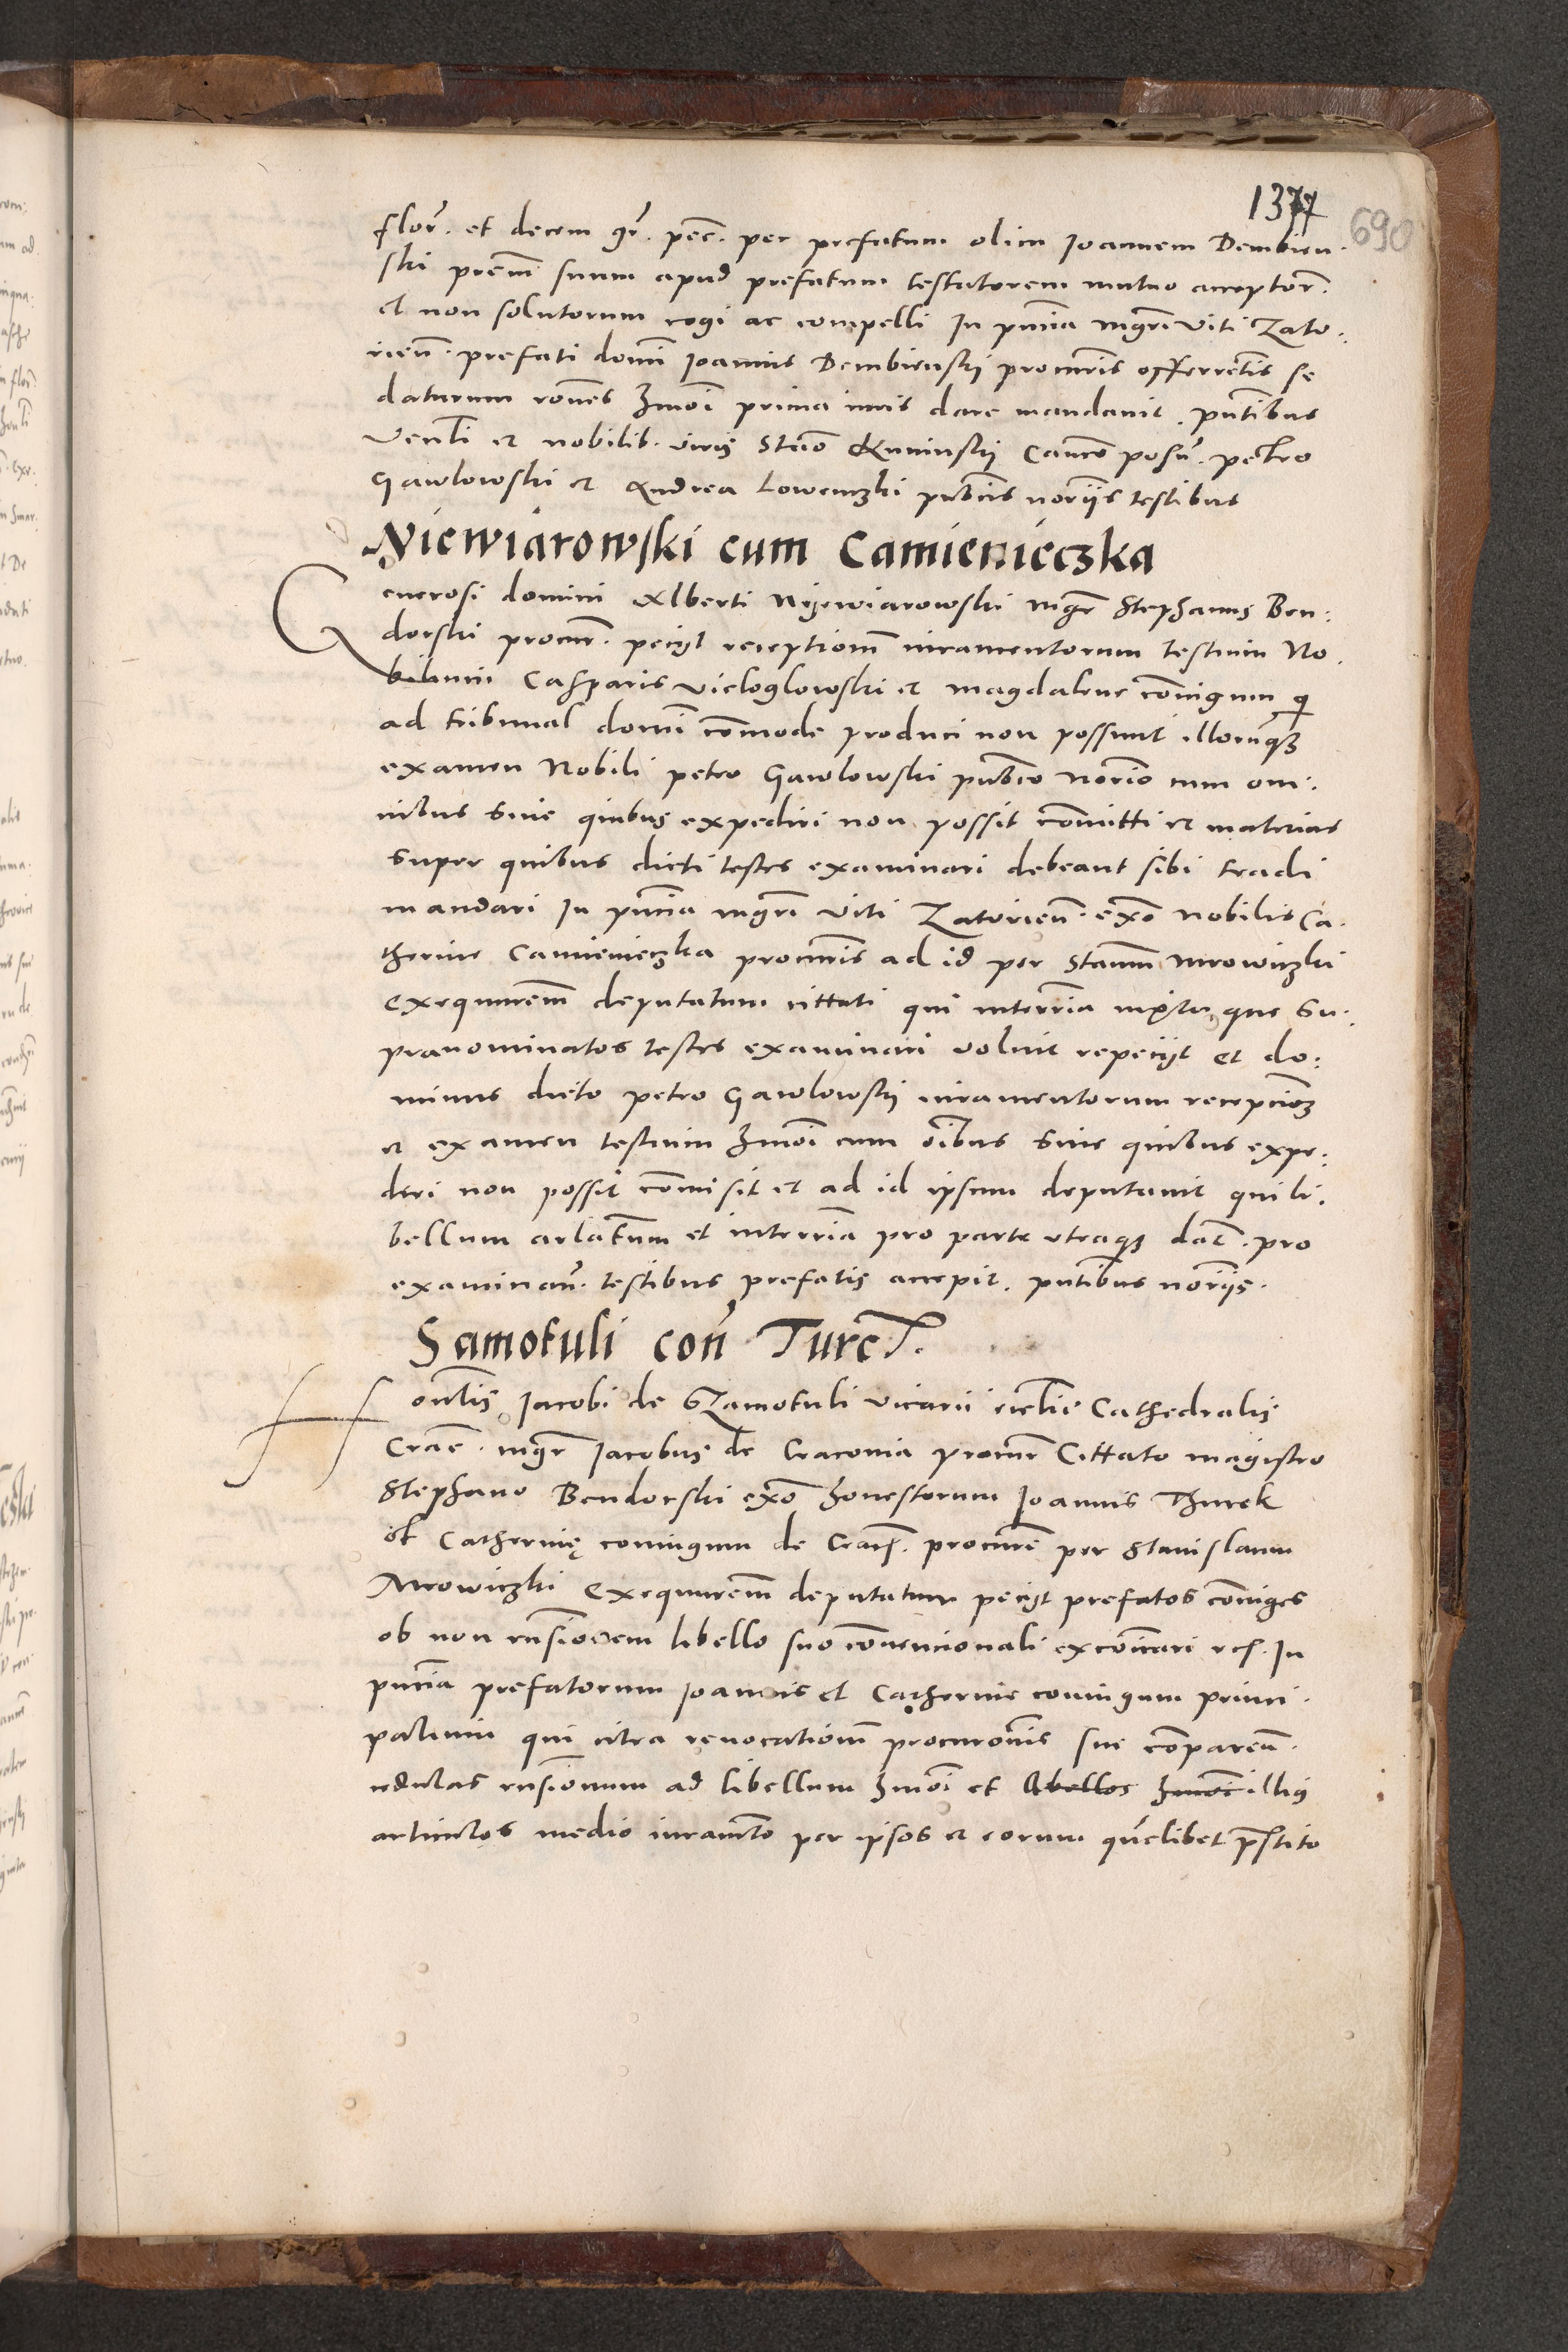 1377
690
flor. et decem gr. pec. per prefatum olim Ioannem Dembien.
ski prem suum apud prefatum testatorem mutuo acceptor.
et non solutorum cogi ac compelli In pntia mgri Viti Zato.
rien. prefati domi Ioannis Dembienskij procuris offerentis se
daturum rones hmoi prima iuris dare mandavit. pntibus
Venli et nobilib. viris Stao Cancro posn. petro
Gawlowski et Andrea Lowenczki pubcis norijs testibus
Niewiarowski cum Camienieczka
Generosi domini Alberti Nyewiarowski mgr Stephanus Ben:
dorski procur. pecijt receptionem iuramentorum testium No.
bilium Casparis Vieloglowski et Magdalene coniugum qi
ad tribunal domi commode produci non possunt illorumqz
examen Nobili petro Gawlowski pubco norio cum om:
nibus sine quibus expediri non possit comitti et materias
super quibus dicti testes examinari debeant sibi tradi
mandari In pntia mgri Viti Zatorien. exo nobilis Ca.
therine Camienieczka procuris ad id per Stanm Mrowiczki
exequurem deputatum cittati qui interria iuxta que su.
pranominatos testes examinari voluit repecijt et do:
minus dicto petro Gawlowskij iuramentorum recepcioem
et examen testium hmoi cum oibus sine quibus expe:
diri non possit comisit et ad id ipsum deputavit qui li.
bellum arlatum et interria pro parte utraqz dat. pro
examinan. testibus prefatis accepit. pntibus norijs.
Samotuli con Turcl.
Honlis Iacobi de Szamotuli vicarii ecclie Cathedralis
Crac. mgr Iacobus de Cracovia procur Cittato magistro
Stephano Bendorski exo honestorum Ioannis Thurek
et Catherine coniugum de Crac. procure per Stanislaum
Mrowiczki Exequurem deputatum pecijt prefatos coniuges
ob non rnsionem libello suo conventionali exconicari rel. In
pntia prefatorum Ioannis et Catherine coniugum princi.
palium qui citra revocationem procuronis sue comparen.
cedulas rnsionum ad libellum hmoi et libellos hmoi illius
articulos medio iuramto per ipsos et eorum quelibet prstito